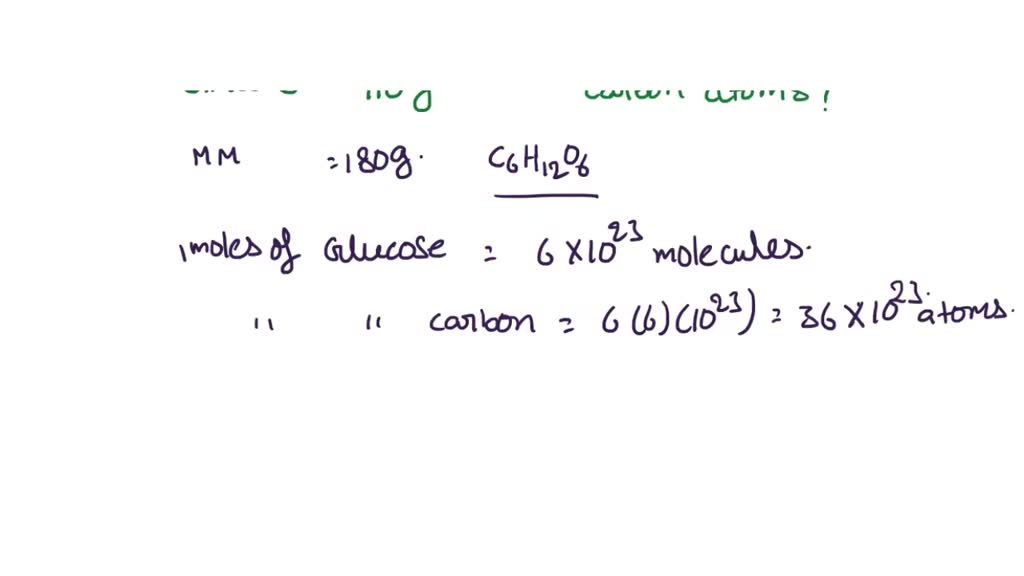 carbon atoms?
MM = 180g. C6H12O6
1 moles of Glucose = 6 X 10^23 molecules.
" " carbon = 6 (6) (10^23) = 36 X 10^23 atoms.